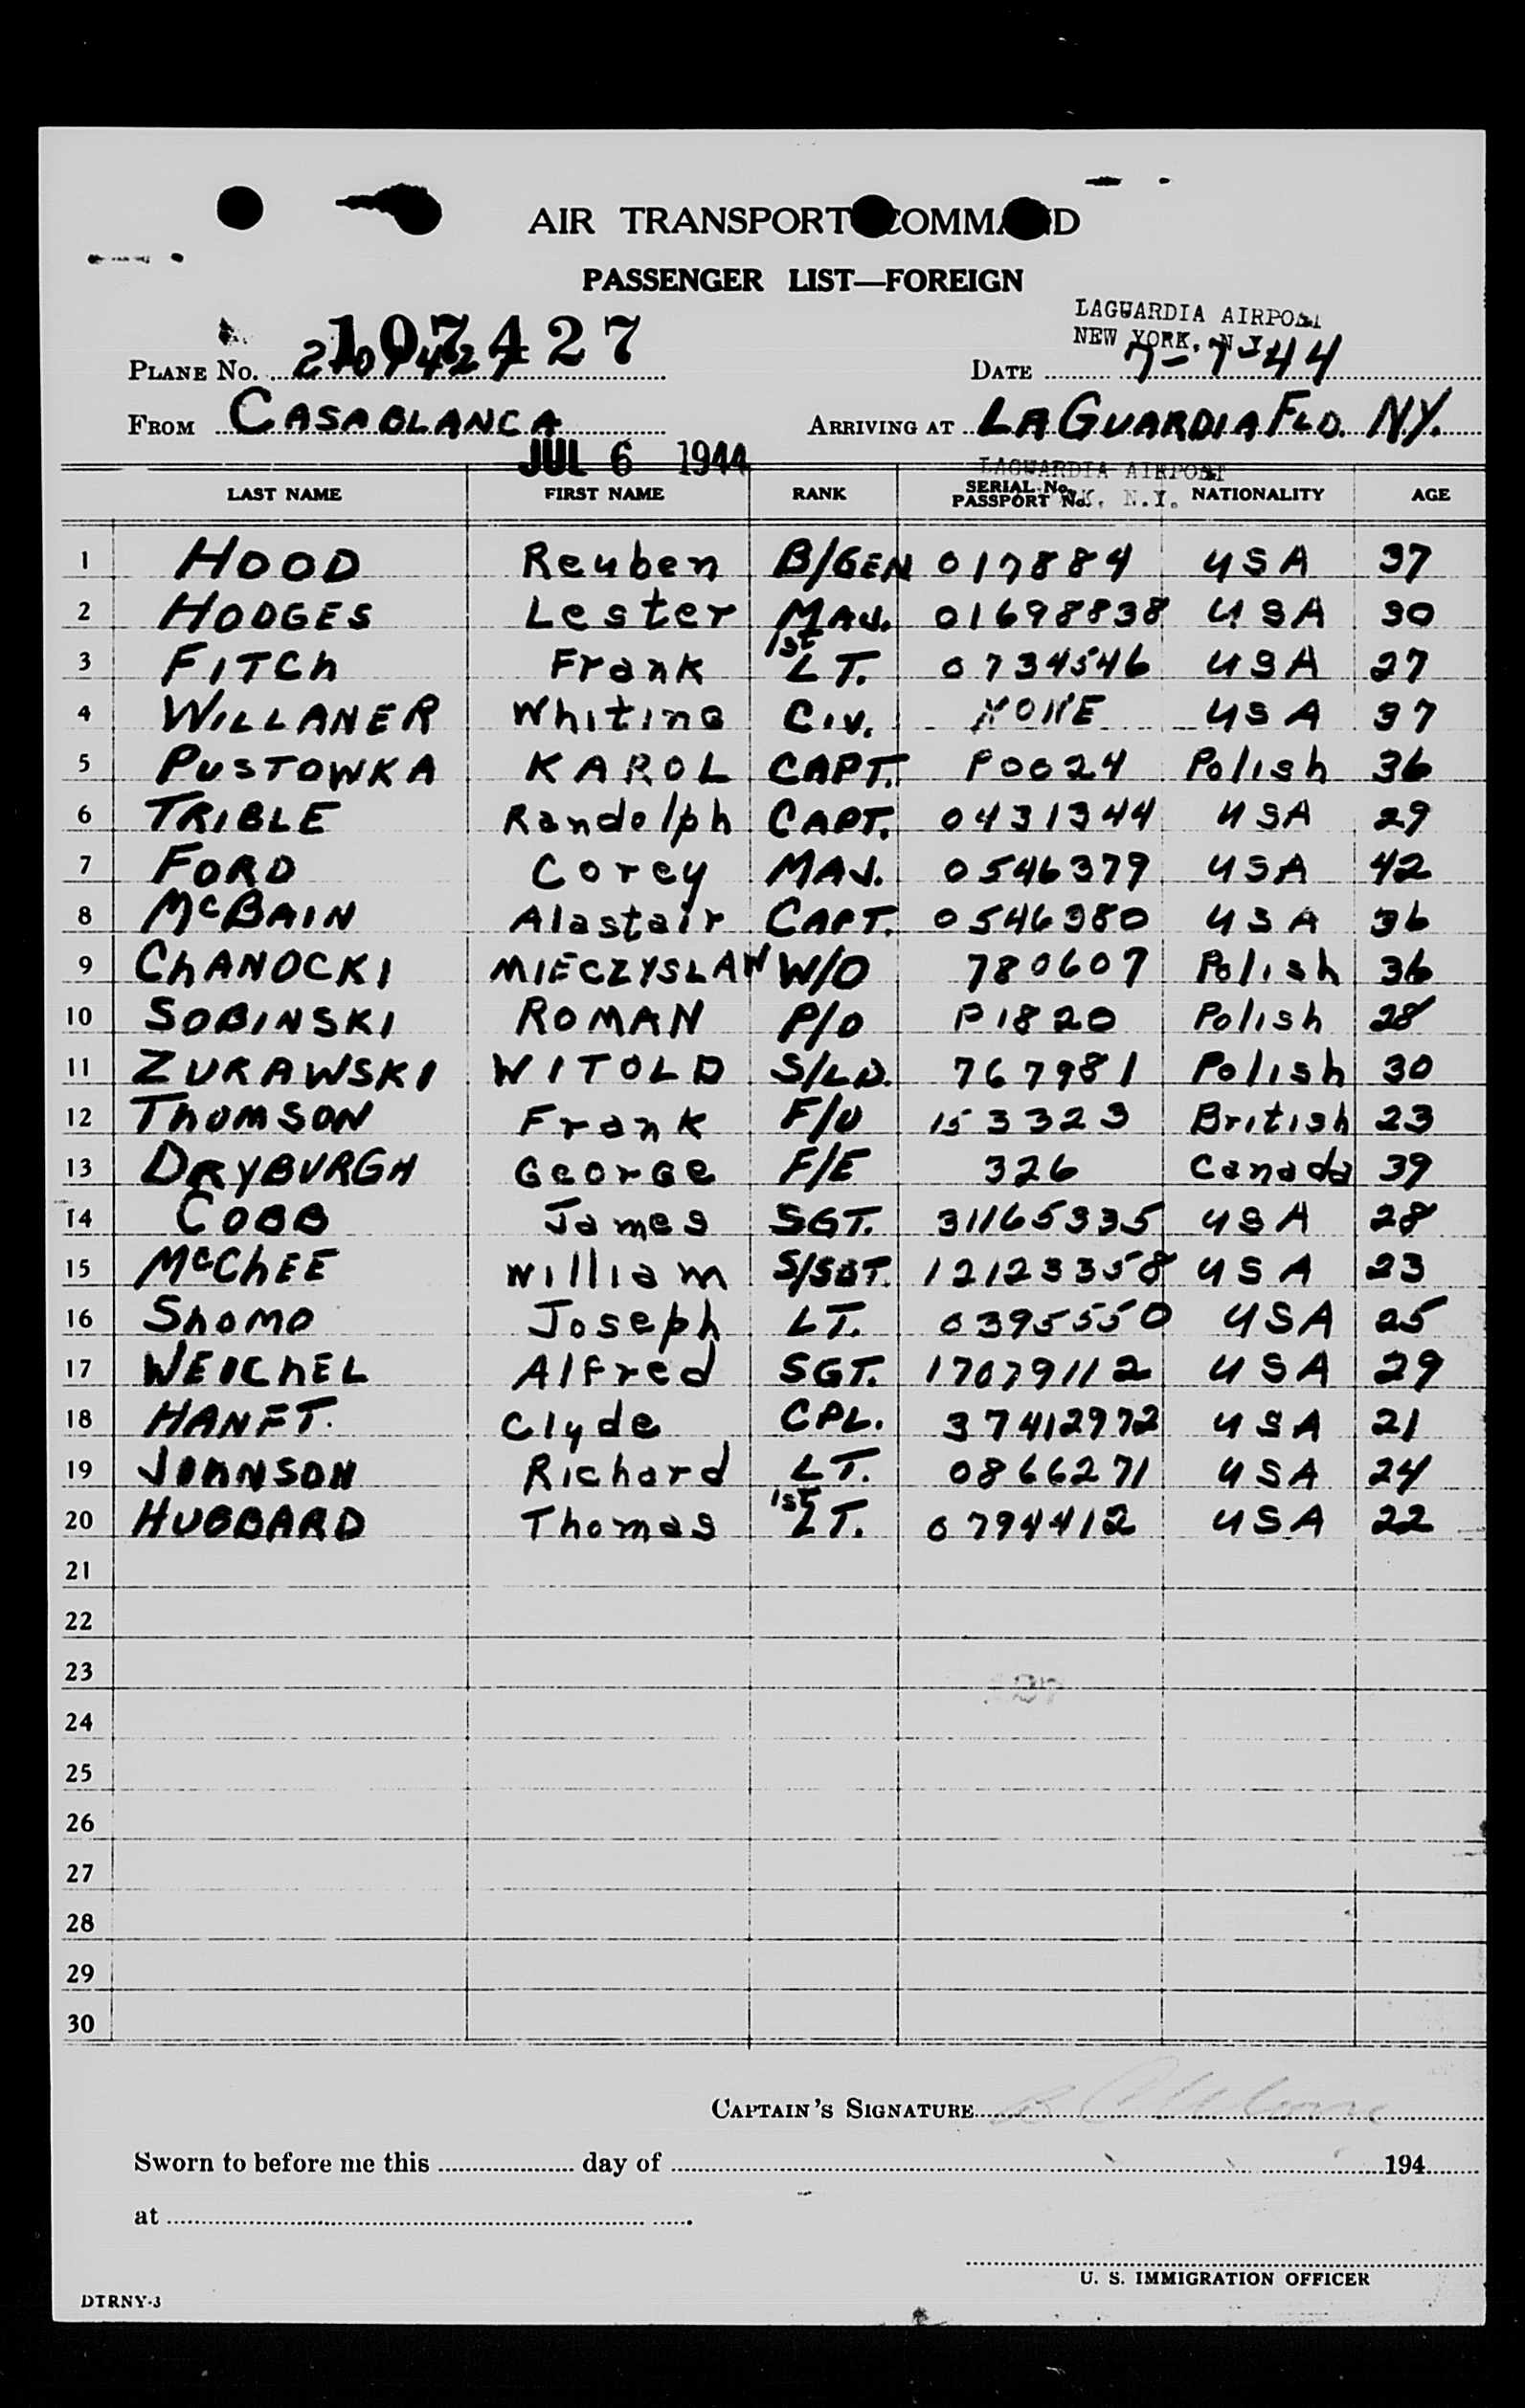 AIR TRANSPORT COMMAND
PASSENGER LIST—FOREIGN
LAGUARDIA AIRPORT
NEW YORK, N.Y.
107427
PLANE No. 2107427
DATE 7-7-44
FROM CASABLANCA
ARRIVING AT LAGUARDIA FLD. N.Y.
JUL 6 1944
LAGUARDIA AIRPORT
K, N.Y.
LAST NAME FIRST NAME RANK SERIAL No. PASSPORT No. NATIONALITY AGE
1 HOOD Reuben B/GEN 017884 USA 37
2 HODGES Lester MAJ. 01698838 USA 30
3 FITCh Frank 1st LT. 0734546 USA 27
4 WILLANER Whiting Civ. NONE USA 37
5 PUSTOWKA KAROL CAPT. P0024 Polish 36
6 TRIBLE Randolph CAPT. 0431344 USA 29
7 FORD Corey MAJ. 0546379 USA 42
8 McBAIN Alastair CAPT. 0546380 USA 36
9 ChANOCKI MIECZYSLAW W/O 780607 Polish 36
10 SOBINSKI ROMAN P/O P1820 Polish 28
11 ZURAWSKI WITOLD S/LD. 767981 Polish 30
12 ThOMSON Frank F/O 153323 British 23
13 DRYBURGH George F/E 326 Canada 39
14 COBB James SGT. 31165335 USA 28
15 McGhEE William S/SGT. 12123358 USA 23
16 ShOMO Joseph LT. 0395550 USA 25
17 WEICHEL Alfred SGT. 17079112 USA 29
18 HANFT. Clyde CPL. 37412972 USA 21
19 JOHNSON Richard LT. 0866271 USA 24
20 HUBBARD Thomas 1st LT. 0794412 USA 22
21
22
23
24
25
26
27
28
29
30
CAPTAIN'S SIGNATURE
Sworn to before me this day of 194
at
U. S. IMMIGRATION OFFICER
DTRNY-3